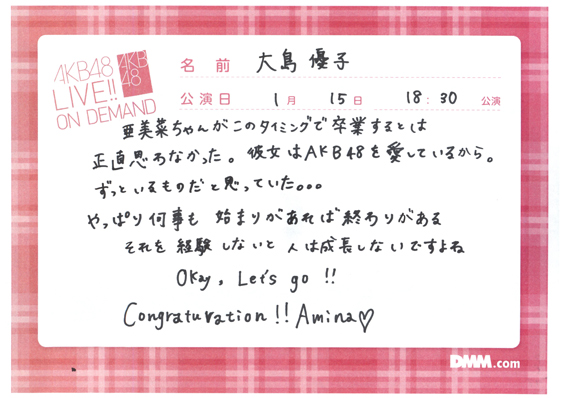 AKB48
LIVE!!
ON DEMAND
AKB
48
名前 大島 優子
公演日 1月 15日 18:30 公演
亜美菜ちゃんがこのタイミングで卒業するとは
正直思わなかった。彼女はAKB48を愛しているから。
ずっといるものだと思っていた。。。
やっぱり何事も 始まりがあれば終わりがある
それを経験しないと人は成長しないですよね
Okay, Let's go !!
Congraturation!! Amina♡
DMM.com